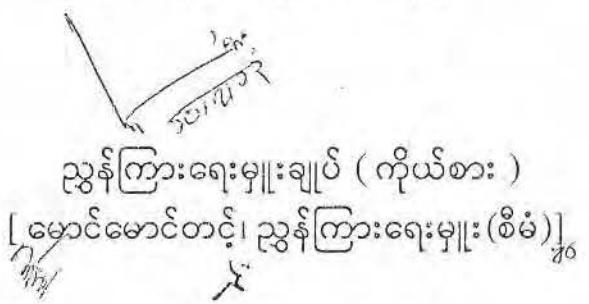 ညွှန်ကြားရေးမှူးချုပ် ( ကိုယ်စား )
[ မောင်မောင်တင့်၊ ညွှန်ကြားရေးမှူး(စီမံ)]